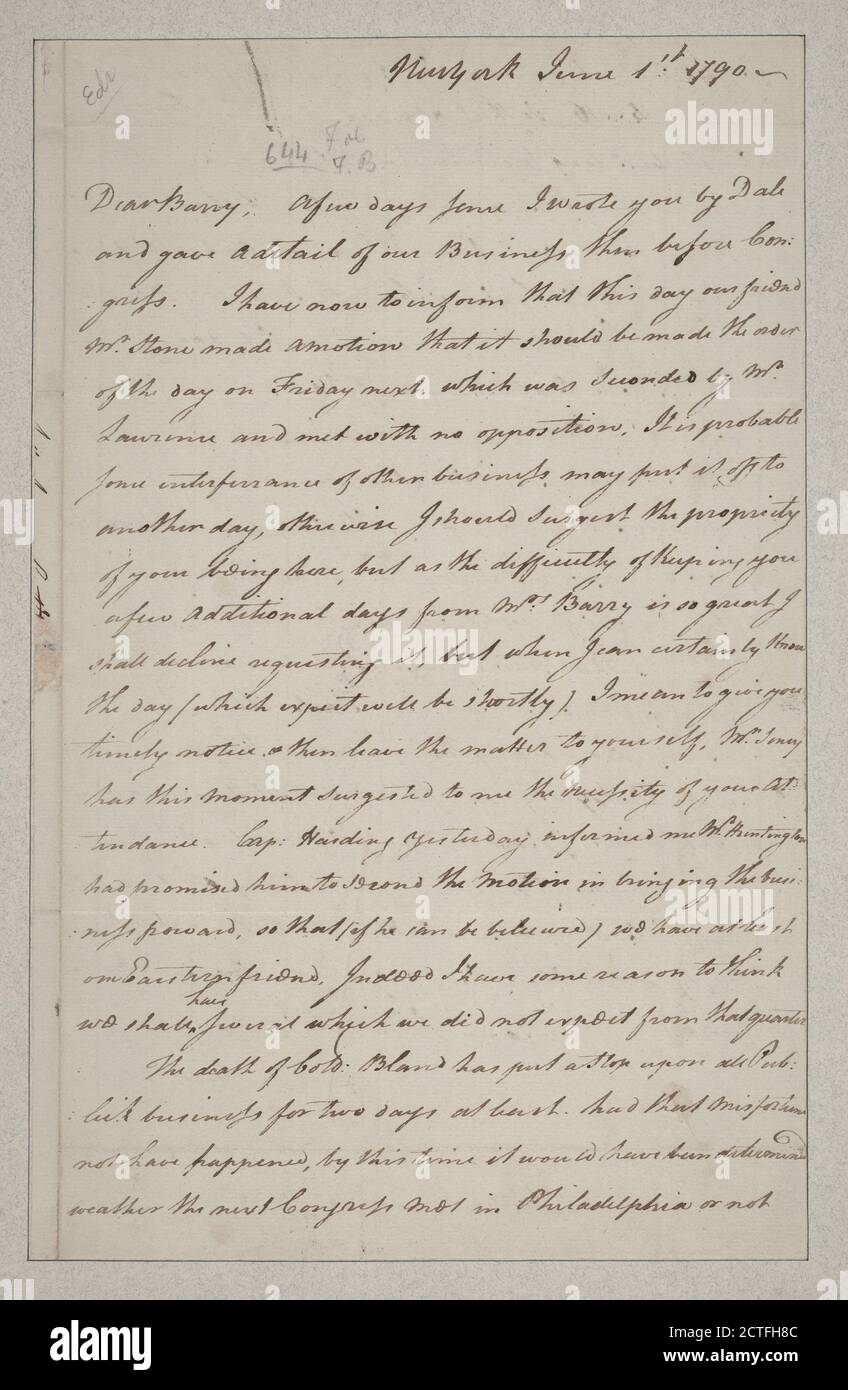 New York June 1st 1790
Edr
644
Dear Barry, A few days sence I wrote you by Dale
and gave a detail of our Business then before Con:
:gress. I have now to inform that this day our friend
Mr Stone made a motion that it should be made the order
of the day on Friday next, which was seconded by Mr
Lawrence and met with no opposition, It is probable
some interferrance of other business may put it off to
another day, otherwise I should sugest the propriety
of your being here, but as the difficulty of keeping you
a few additional days from Mrs Barry is so great I
shall decline requesting it, but when I can certainly know
the day (which expect will be shortly) I mean to give you
timely notice & then leave the matter to yourself, Mr
has this moment sugested to me the necessity of your at
tendance. Cap: Harding yesterday informed me Mr Huntington
had promised him to second the motion in bringing the busi:
:ness forward, so that (if he can be believed) we have at least
one Eastern friend, Indeed I have some reason to think
we shall have several which we did not expect from that quarter
The death of Colo: Bland has put a stop upon all Pub:
:lick business for two days at least. had that misfortune
not have happened, by this time it would have been determined
weather the next Congress met in Philadelphia or not
alamy
Image ID: 2CTFH8C
www.alamy.com